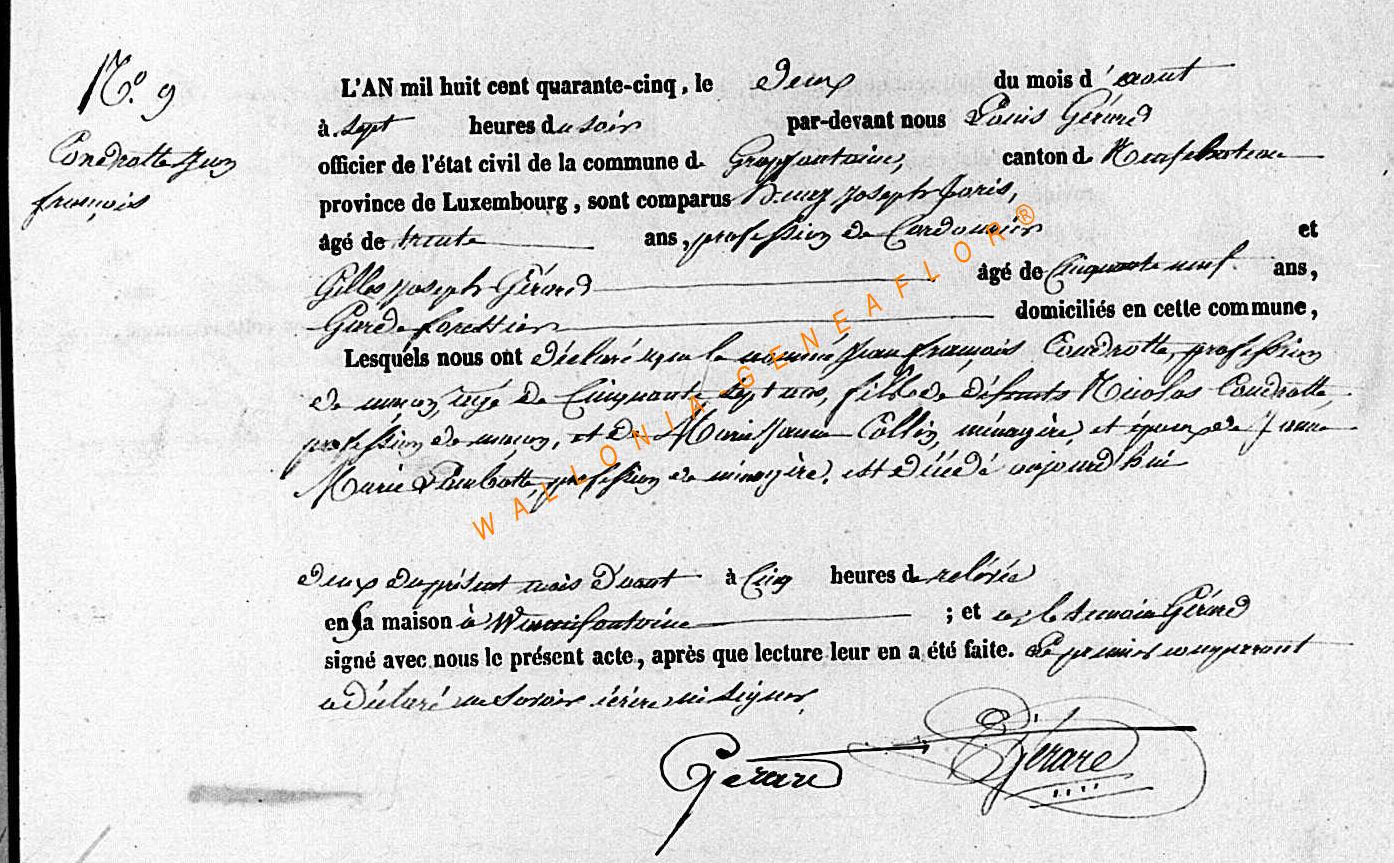 N.o 9
Condrotte Jean
françois
L'AN mil huit cent quarante-cinq, le deux du mois d'aout
à sept heures du soir par-devant nous Louis Gérard
officier de l'état civil de la commune de Grapfontaine, canton de Neufchateau
province de Luxembourg, sont comparus Joseph Joris,
âgé de trente ans, profession de Cordonnier et
Gilles joseph Gérard âgé de Cinquante neuf ans,
Garde forestier domiciliés en cette commune,
Lesquels nous ont déclaré que le nommé Jean françois Condrotte, profession
de maçon, agé de Cinquante sept ans, fils de défunts Nicolas Condrotte,
profession de maçon, et de Marie Jeanne Collin, ménagère, et époux de Jeanne
Marie profession de ménagère, est décédé aujourd'hui
deux du présent mois d'aout à Cinq heures de relevée
en sa maison à Warmifontaine ; et le témoin Gérard
signé avec nous le présent acte, après que lecture leur en a été faite. Le premier comparant
a déclaré ne savoir écrire ni signer.
Gérard Gérard
WALLONIA-GENEAFLOR®